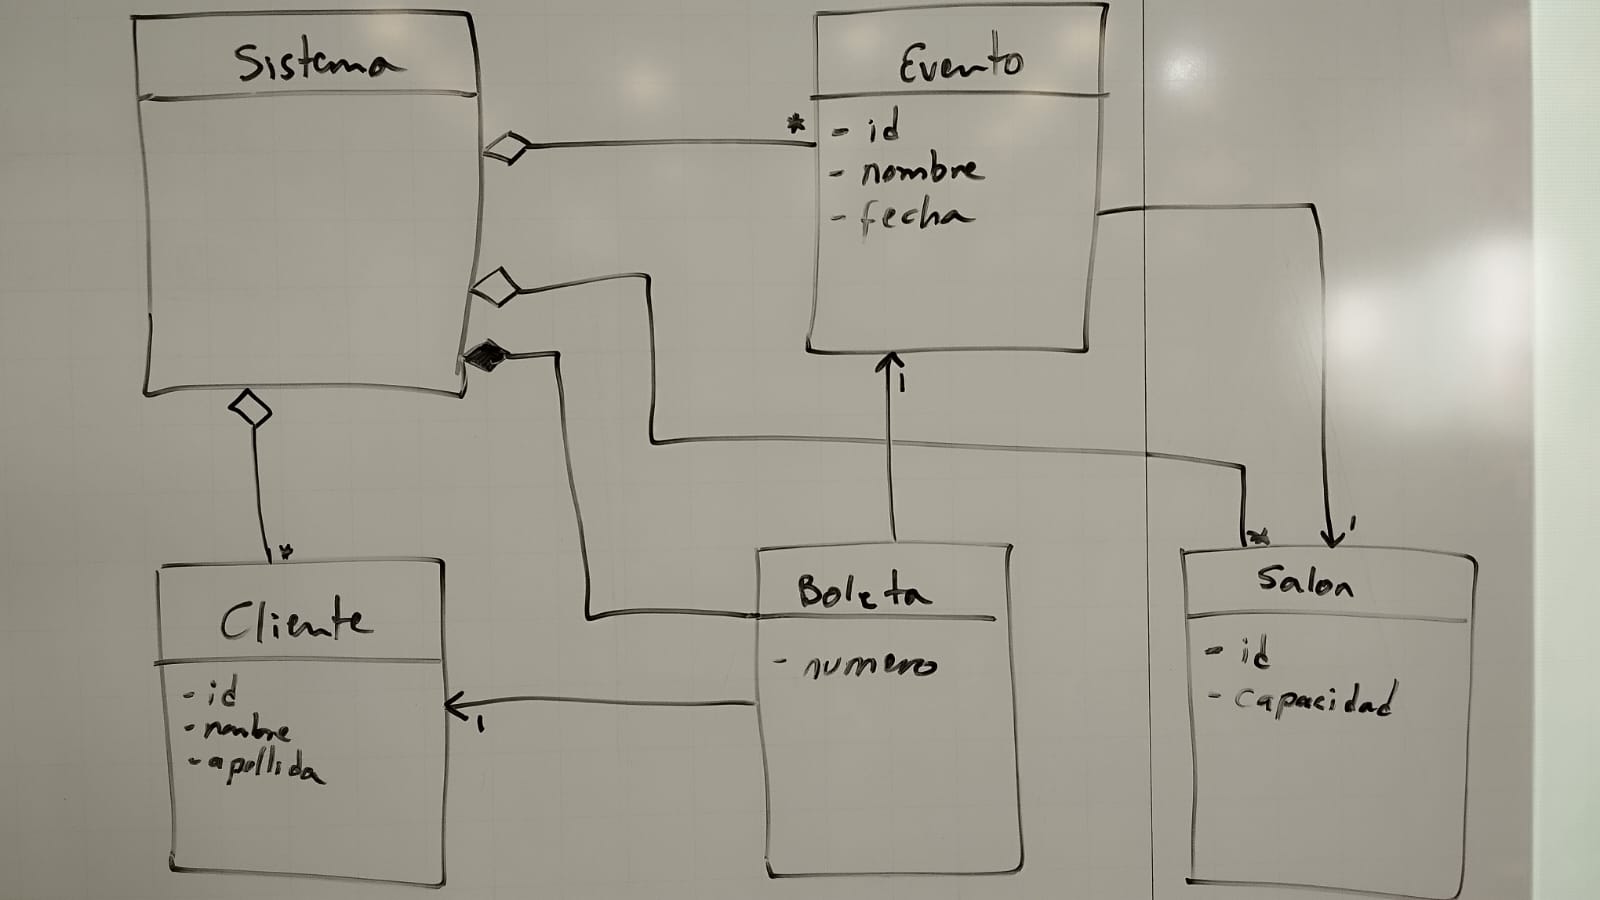 Sistema
Evento
*
- id
- nombre
- fecha
1
*
1
*
Cliente
- id
- nombre
- apellida
1
Boleta
- numero
Salon
- id
- capacidad